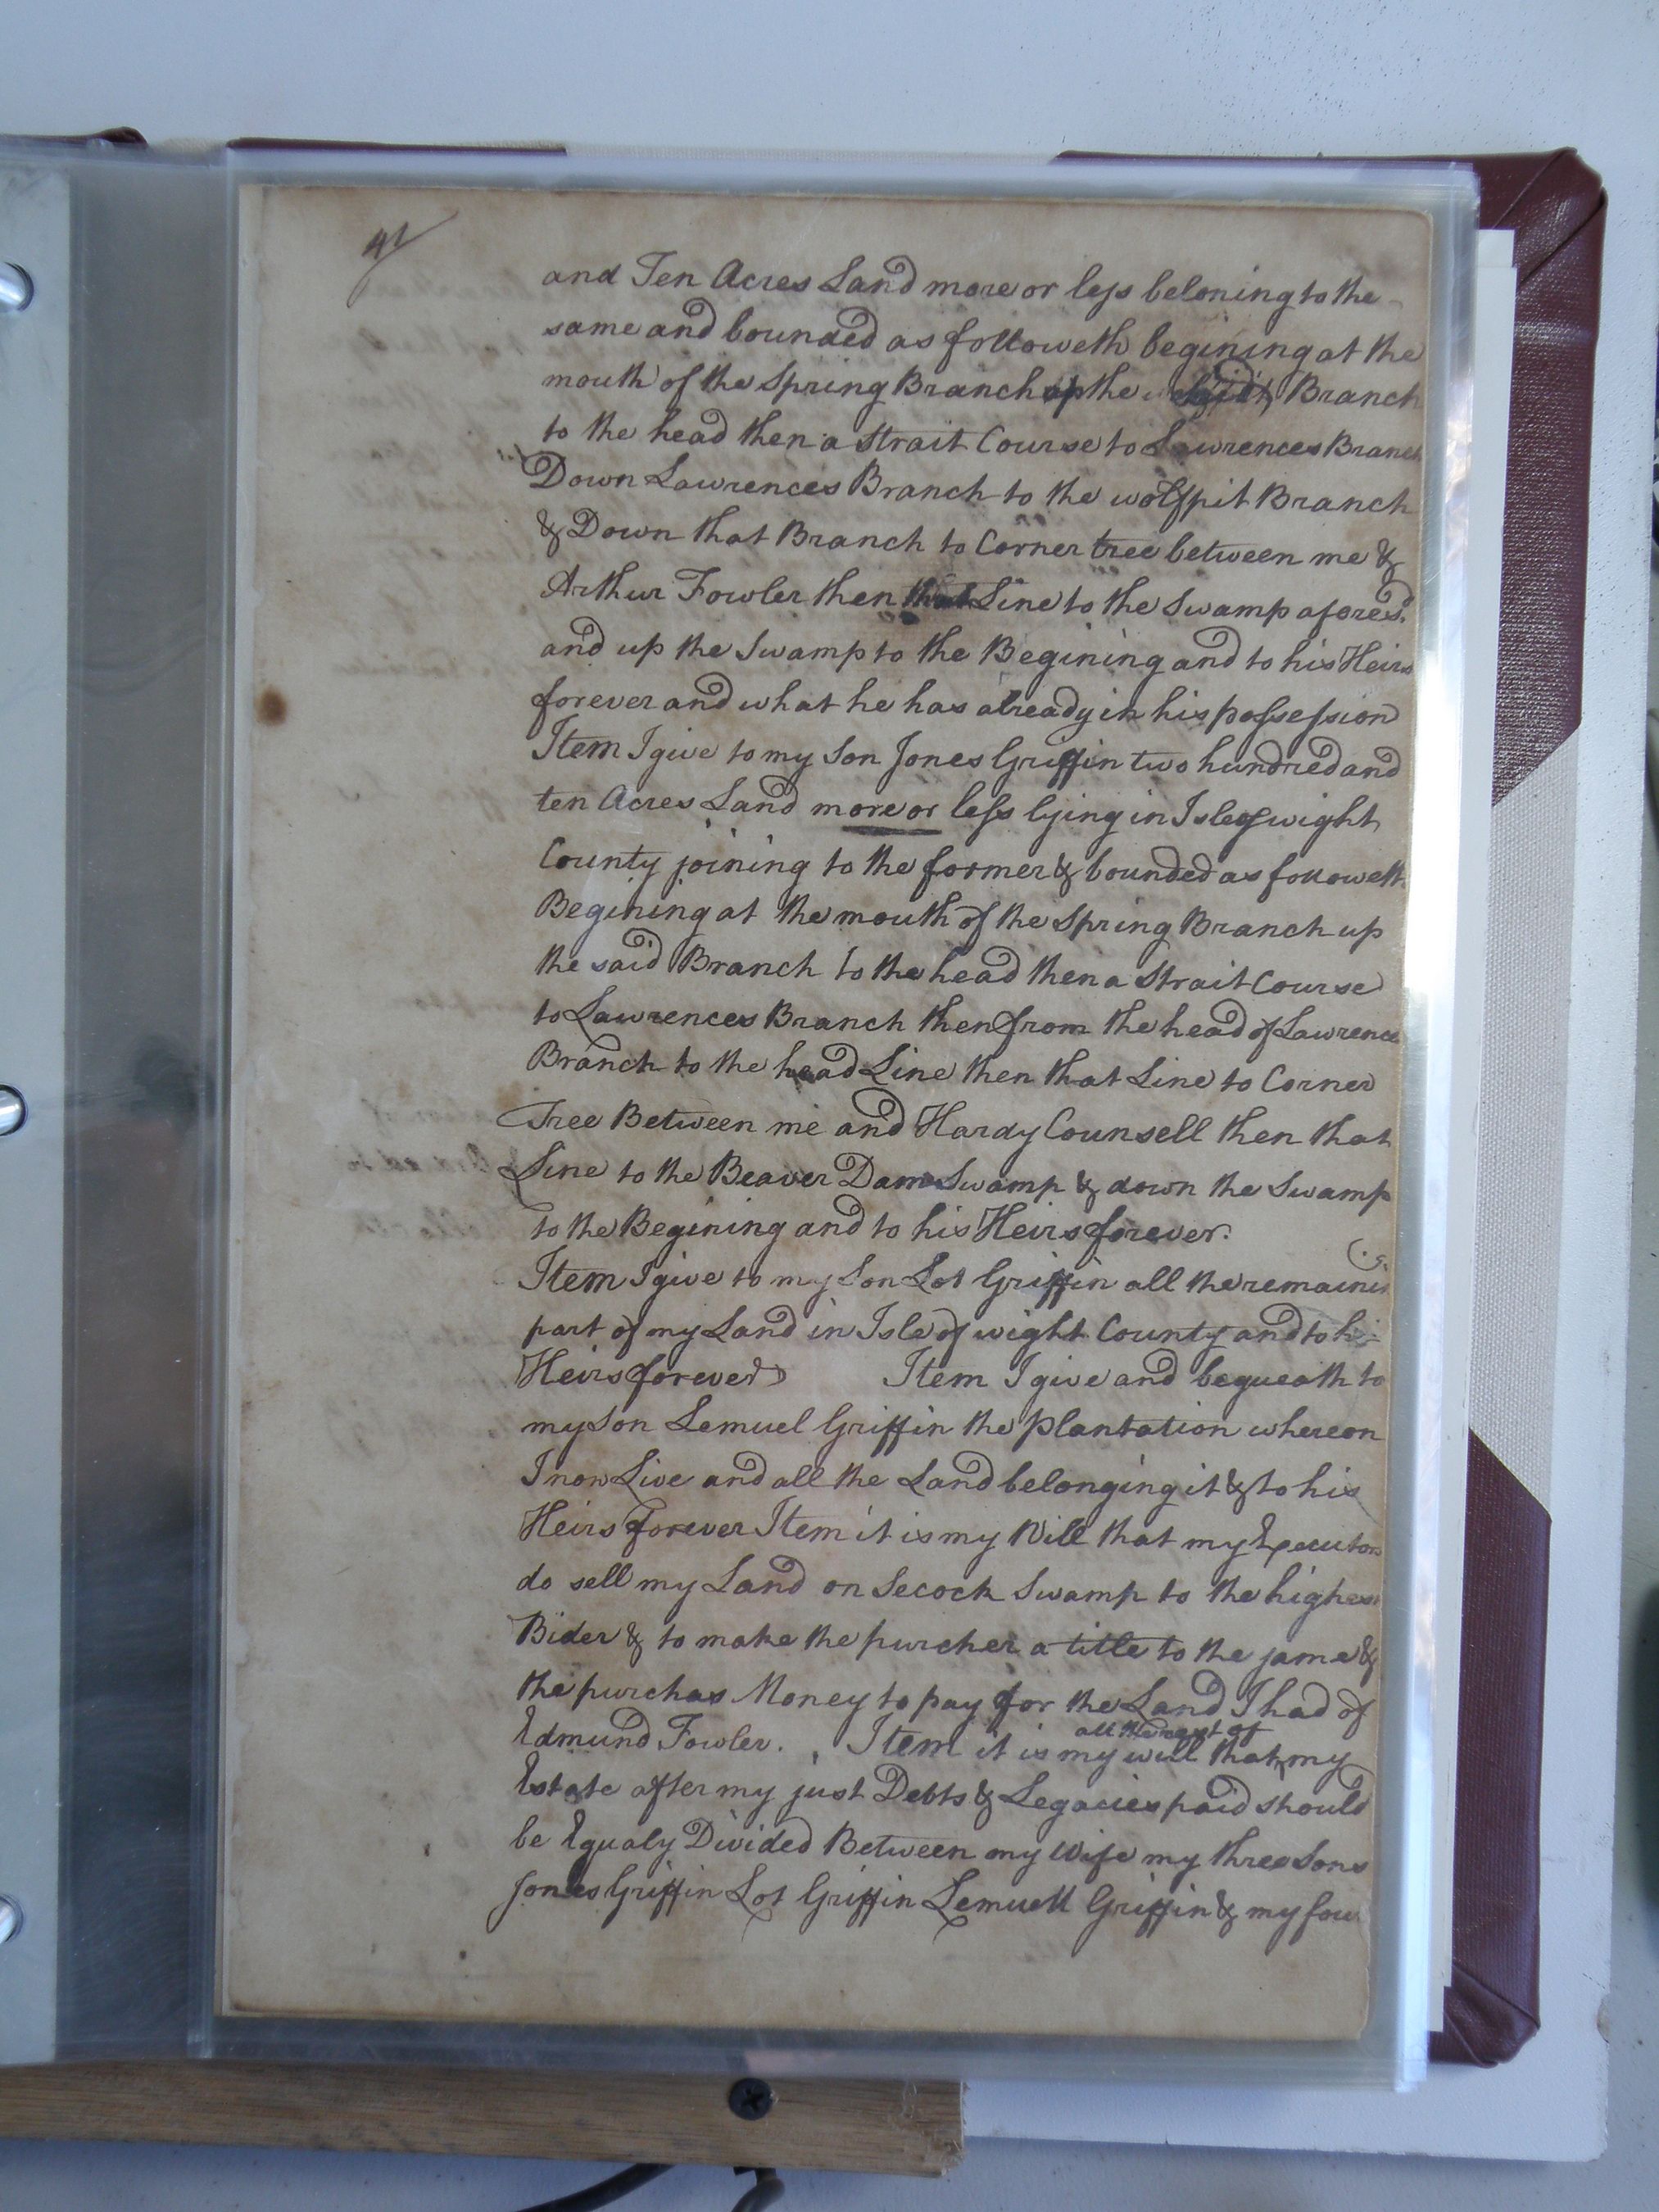 41
and Ten Acres Land more or less beloning to the
same and bounded as followeth begining at the
mouth of the Spring Branch up the said Branch
to the head then a strait Course to Lawrences Branch
Down Lawrences Branch to the wolfpit Branch
& Down that Branch to Corner tree between me &
Arthur Fowler then that Line to the Swamp aforesd.
and up the Swamp to the Begining and to his Heirs
forever and what he has already in his possession
Item I give to my Son Jones Griffin two hundred and
ten Acres Land more or less lying in Isle of wight
County joining to the former & bounded as followeth
Begining at the mouth of the Spring Branch up
the said Branch to the head then a strait Course
to Lawrences Branch then from the head of Lawrence
Branch to the head Line then that Line to Corner
Tree Between me and Hardy Counsell then that
Line to the Beaver Dam Swamp & down the Swamp
to the Begining and to his Heirs forever.
Item I give to my Son Lot Griffin all the remaining
part of my Land in Isle of wight County and to his
Heirs forever Item I give and bequeath to
my son Lemuel Griffin the plantation whereon
I now Live and all the Land belonging it & to his
Heirs forever Item it is my Will that my Executors
do sell my Land on Secock Swamp to the highest
Bider & to make the purcher a title to the same &
the purchas Money to pay for the Land I had of
all the rest of
Edmund Fowler. Item it is my will that my
Estate after my just Debts & Legacies paid should
be Equaly Divided Between my Wife my three Sons
Jones Griffin Lot Griffin Lemuell Griffin & my four